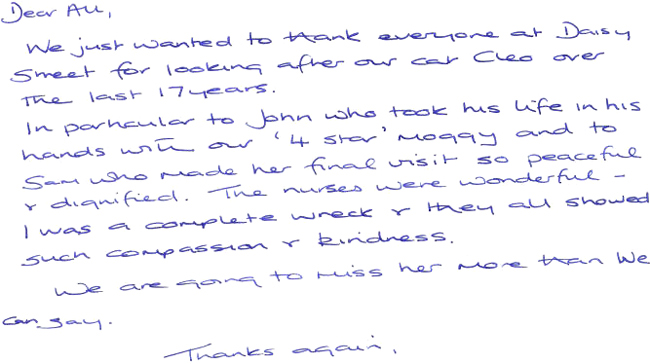 Dear All,
We just wanted to thank everyone at Daisy
Street for looking after our cat Cleo over
the last 17 years.
In particular to John who took his life in his
hands with our '4 star' moggy and to
Sam who made her final visit so peaceful
& dignified. The nurses were wonderful -
I was a complete wreck & they all showed
such compassion & kindness.
We are going to miss her more than we
can say.
Thanks again,